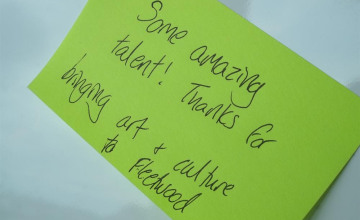 Some amazing
talent! Thanks for
bringing art + culture
to Fleetwood